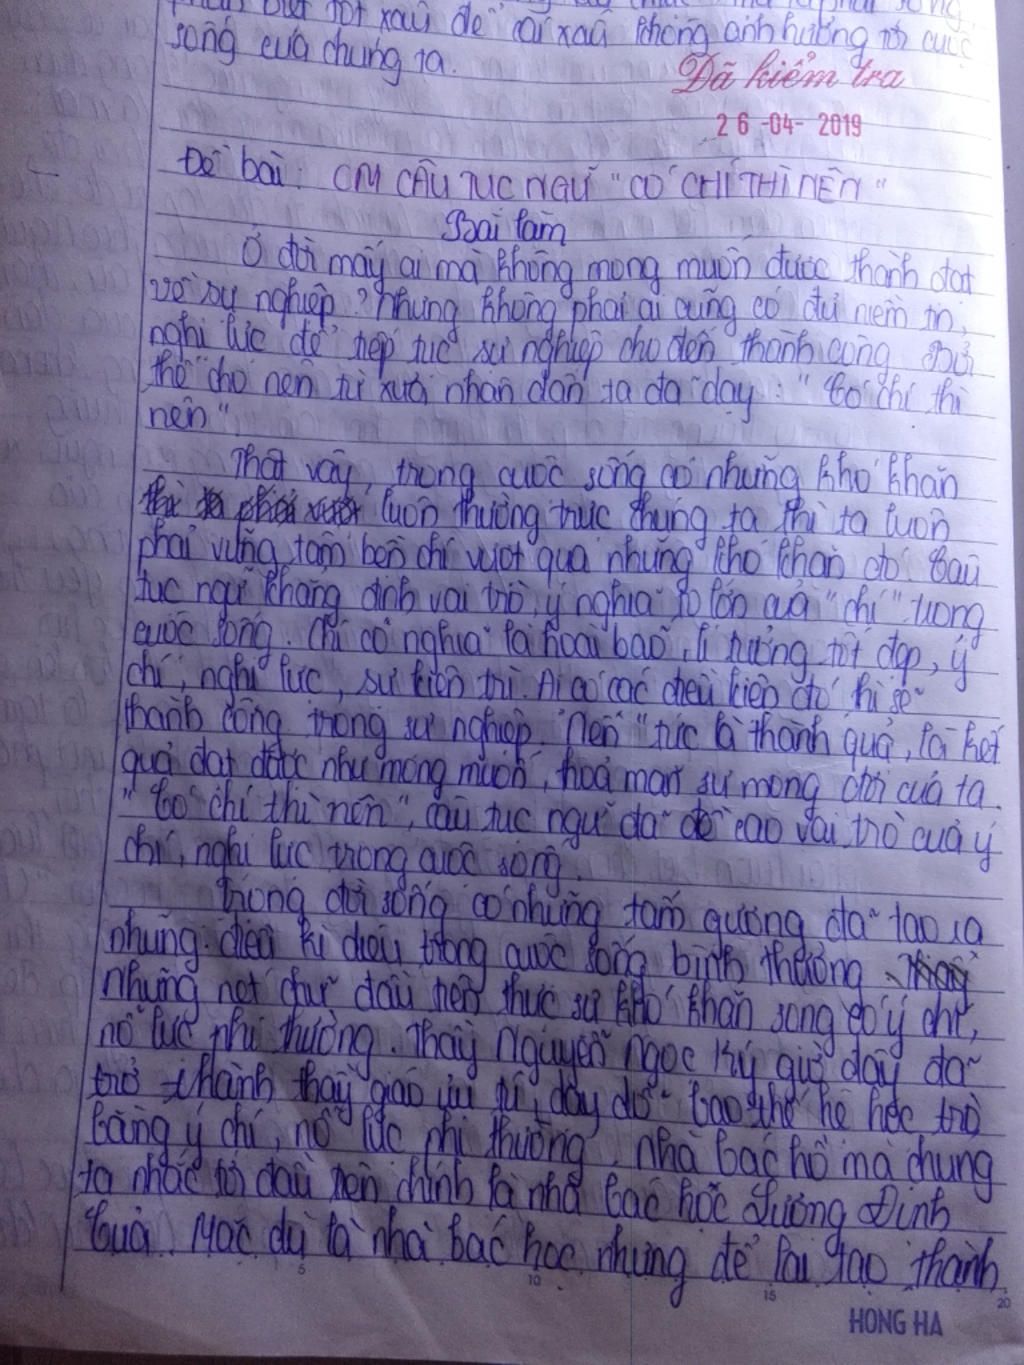 phân biệt tốt xấu để cái xấu không ảnh hưởng tới cuộc
sống của chúng ta.
Đã kiểm tra
26-04-2019
Đề bài: CM CÂU TỤC NGỮ "CÓ CHÍ THÌ NÊN"
Bài làm
Ở đời mấy ai mà không mong muốn được thành đạt
về sự nghiệp? Nhưng không phải ai cũng có đủ niềm tin,
nghị lực để tiếp tục sự nghiệp cho đến thành công. Bởi
thế cho nên từ xưa nhân dân ta đã dạy: "Có chí thì
nên".
Thật vậy, trong cuộc sống có những khó khăn
luôn thường trực chúng ta thì ta luôn
phải vững tâm bền chí vượt qua những khó khăn đó. Câu
tục ngữ khẳng định vai trò, ý nghĩa to lớn của "chí" trong
cuộc sống. Chí có nghĩa là hoài bão, lí tưởng tốt đẹp, ý
chí, nghị lực, sự kiên trì. Ai có các điều kiện đó thì sẽ
thành công trong sự nghiệp. "Nên" tức là thành quả, là kết
quả đạt được như mong muốn, thoả mãn sự mong đợi của ta.
"Có chí thì nên", câu tục ngữ đã đề cao vai trò của ý
chí, nghị lực trong cuộc sống.
Trong đời sống có những tấm gương đã tạo ra
những điều kì diệu trong cuộc sống bình thường.
những nét chữ đầu tiên thực sự khó khăn song có ý chí,
nỗ lực phi thường. Thầy Nguyễn Ngọc Ký giờ đây đã
trở thành thầy giáo ưu tú, dạy dỗ bao thế hệ học trò
bằng ý chí, nỗ lực phi thường. Nhà bác hồ mà chúng
ta nhắc tới đầu tiên chính là nhà bác học Lương Định
Của. Mặc dù là nhà bác học nhưng để lai tạo thành
HONG HA
5
10
15
20